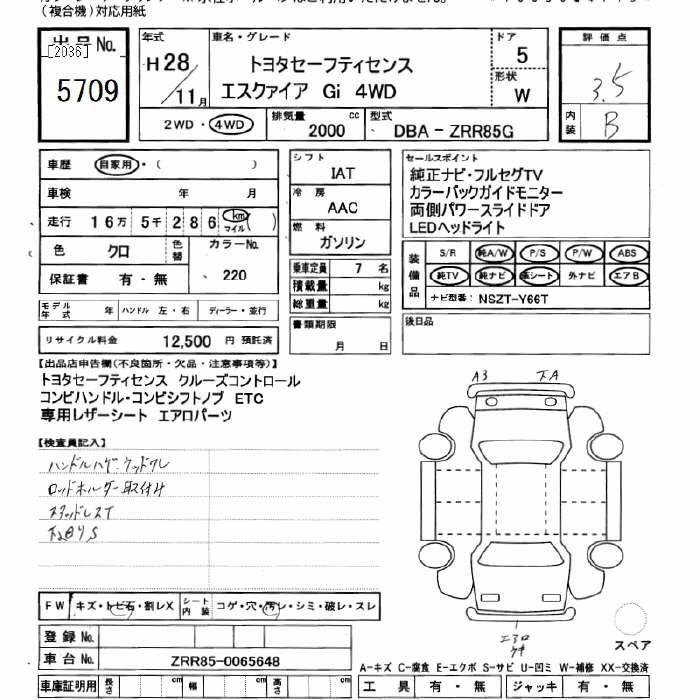 (複合機)対応用紙
出品No.
[2036]
5709
年式
H28/11月
車名・グレード
トヨタセーフティセンス
エスクァイア Gi 4WD
ドア
5
形状
W
評価点
3.5
内装
B
2WD・4WD
排気量
2000 cc
型式
DBA - ZRR85G
車歴 自家用・( )
車検 年 月
走行 16万 5千 2 8 6 km マイル ( )
色 クロ 色替 カラーNo.
保証書 有・無 220
シフト
IAT
冷房
AAC
燃料
ガソリン
乗車定員 7 名
積載量 kg
総重量 kg
セールスポイント
純正ナビ・フルセグTV
カラーバックガイドモニター
両側パワースライドドア
LEDヘッドライト
装備品
S/R 純A/W P/S P/W ABS
純TV 純ナビ 革シート 外ナビ エアB
ナビ型番: NSZT-Y66T
モデル年式 年 ハンドル 左・右 ディーラー・並行
リサイクル料金 12,500 円 預託済
書類期限
月 日
後日品
【出品店申告欄(不良箇所・欠品・注意事項等)】
トヨタセーフティセンス クルーズコントロール
コンビハンドル・コンビシフトノブ ETC
専用レザーシート エアロパーツ
【検査員記入】
ハンドルハゲ・ウッドワレ
ロッドホルダー取付け
スタッドレスT
下廻りS
A3 下A
エアロ
キキ
スペア
FW キズ・トビ石・割レX シート内装 コゲ・穴・汚レ・シミ・破レ・スレ
登録No.
車台No. ZRR85-0065648
A-キズ C-腐食 E-エクボ S-サビ U-凹ミ W-補修 XX-交換済
車庫証明用 長さ cm 幅 cm 高さ cm
工具 有・無 ジャッキ 有・無